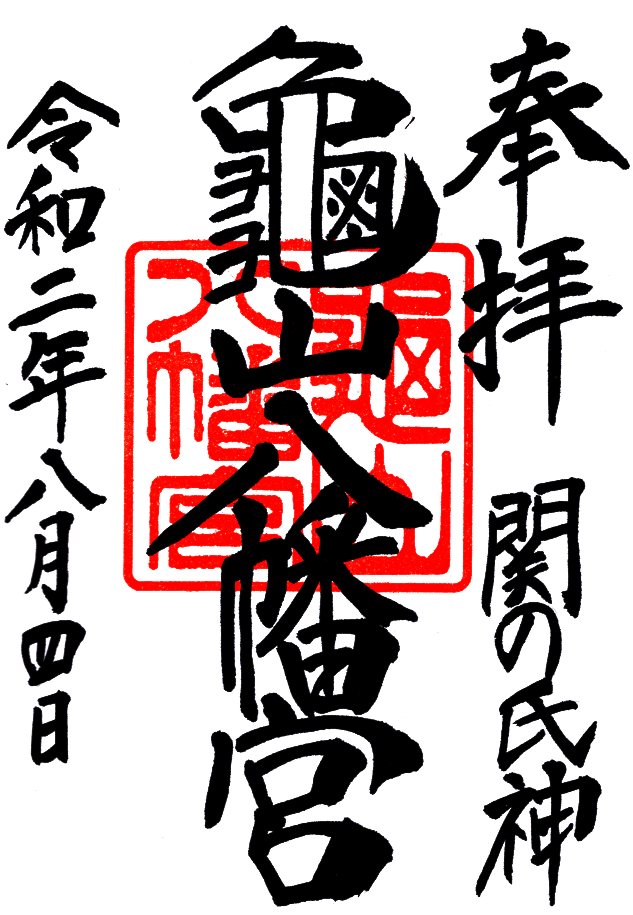 奉拝 関の氏神
龜山八幡宮
龜山八幡宮
令和二年八月四日